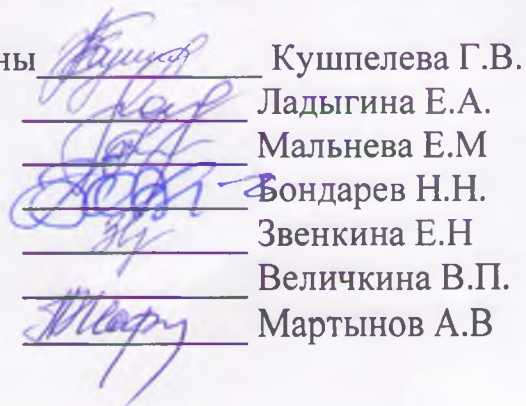 ны Кушпелева Г.В.
Ладыгина Е.А.
Мальнева Е.М
Бондарев Н.Н.
Звенкина Е.Н
Величкина В.П.
Мартынов А.В